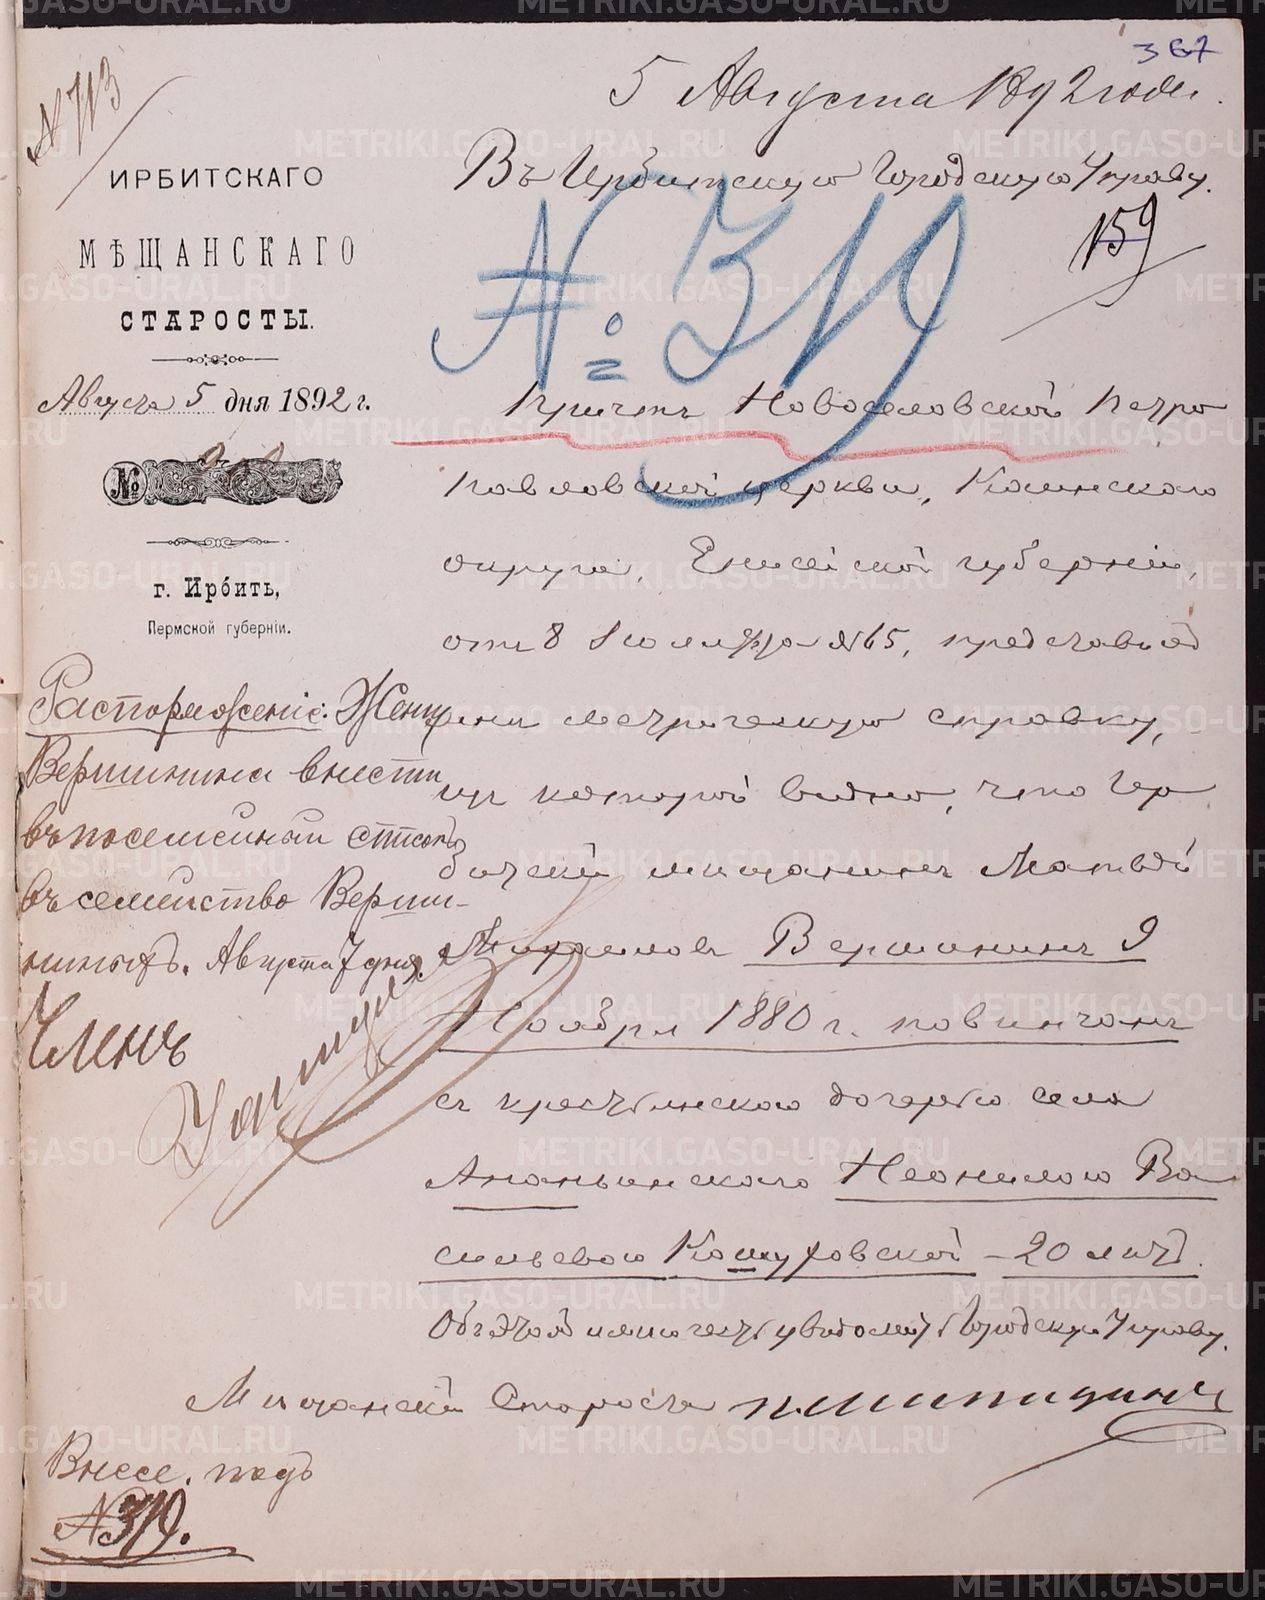 367
№ 713
5 Августа 1892 года.
ИРБИТСКАГО
МѢЩАНСКАГО
СТАРОСТЫ.
Августа 5 дня 1892 г.
№
г. Ирбить,
Пермской губерніи.
Въ Ирбитскую Городскую Управу.
159
№ 319
Причтъ Новоселовской Петро
Павловской церкви,
округа, Енисейской губерніи,
отъ 8 № 65, представилъ
метрическую справку,
изъ которой видно, что Ир
битскій мѣщанинъ Матвѣй
Вершининъ 9
Ноября 1880 г. повѣнчанъ
съ крестьянскою дочерью села
Ананьинскаго Неонилою Ва
сильевою Кошуровской – 20 лѣтъ.
Объ этомъ имѣю честь увѣдомить Городскую Управу.
Мѣщанскій Староста
Распоряженіе: Жену
Вершинина внести
въ посемейный списокъ
въ семейство Верши-
ниныхъ. Августа 7 дня.
Членъ
Внесе. подъ
№ 319.
METRIKI.GASO-URAL.RU